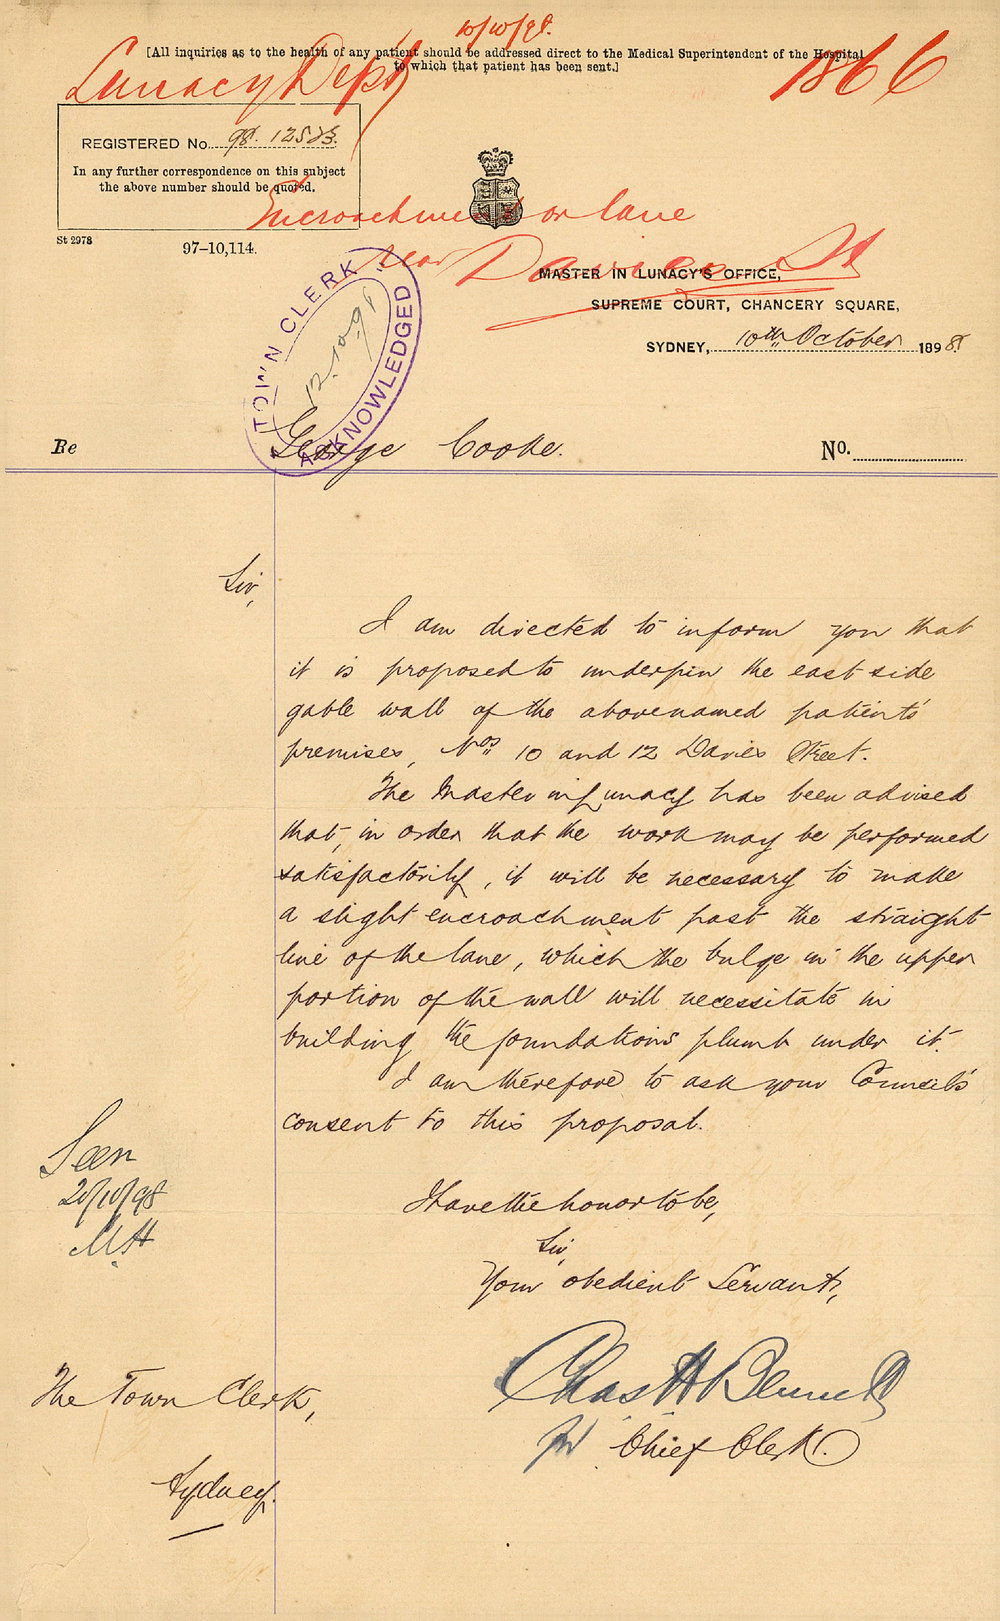 10/10/98.
[All inquiries as to the health of any patient should be addressed direct to the Medical Superintendent of the Hospital
to which that patient has been sent.]
Lunacy Dept
1866
REGISTERED No. 98. 12523.
In any further correspondence on this subject
the above number should be quoted.
St 2978
97–10,114.
Encroachment on lane
near Davies St
MASTER IN LUNACY'S OFFICE,
SUPREME COURT, CHANCERY SQUARE,
SYDNEY, 10th October 1898.
TOWN CLERK
12.10.98
ACKNOWLEDGED
Re George Cooke. No.
Sir,
I am directed to inform you that
it is proposed to underpin the east side
gable wall of the abovenamed patient's
premises, Nos. 10 and 12 Davies Street.
The Master in Lunacy has been advised
that, in order that the work may be performed
satisfactorily, it will be necessary to make
a slight encroachment past the straight
line of the lane, which the bulge in the upper
portion of the wall will necessitate in
building the foundations plumb under it.
I am therefore to ask your Council's
consent to this proposal.
I have the honor to be,
Sir,
Your obedient Servant,
Chas H Bennett
for Chief Clerk.
Seen
20/10/98
MH
The Town Clerk,
Sydney.